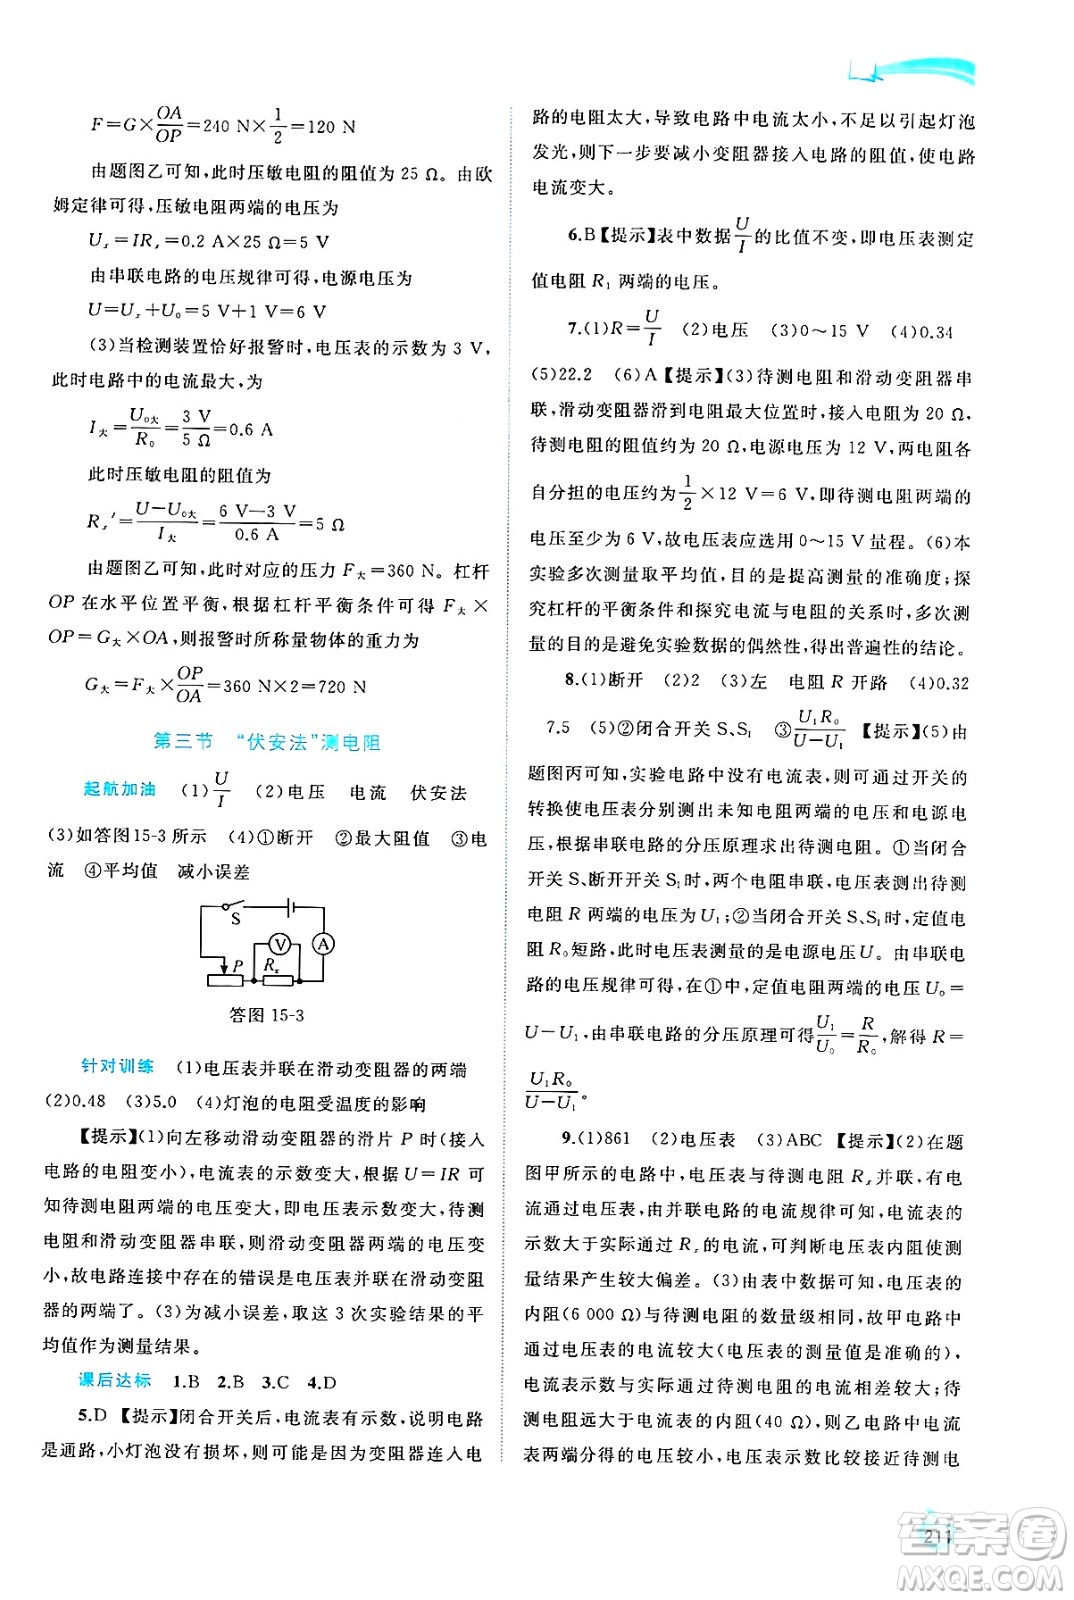 F=G×OA/OP=240 N×1/2=120 N
由题图乙可知，此时压敏电阻的阻值为 25 Ω。由欧
姆定律可得，压敏电阻两端的电压为
Uₓ=IRₓ=0.2 A×25 Ω=5 V
由串联电路的电压规律可得，电源电压为
U=Uₓ+U₀=5 V+1 V=6 V
(3)当检测装置恰好报警时，电压表的示数为 3 V，
此时电路中的电流最大，为
I大=U₀大/R₀=3 V/5 Ω=0.6 A
此时压敏电阻的阻值为
Rₓ′=(U-U₀大)/I大=(6 V-3 V)/0.6 A=5 Ω
由题图乙可知，此时对应的压力 F大=360 N。杠杆
OP 在水平位置平衡，根据杠杆平衡条件可得 F大×
OP=G大×OA，则报警时所称量物体的重力为
G大=F大×OP/OA=360 N×2=720 N
第三节 “伏安法”测电阻
起航加油 (1)U/I (2)电压 电流 伏安法
(3)如答图15-3 所示 (4)①断开 ②最大阻值 ③电
流 ④平均值 减小误差
S
V
A
P
Rₓ
答图 15-3
针对训练 (1)电压表并联在滑动变阻器的两端
(2)0.48 (3)5.0 (4)灯泡的电阻受温度的影响
【提示】(1)向左移动滑动变阻器的滑片 P 时(接入
电路的电阻变小)，电流表的示数变大，根据 U=IR 可
知待测电阻两端的电压变大，即电压表示数变大，待测
电阻和滑动变阻器串联，则滑动变阻器两端的电压变
小，故电路连接中存在的错误是电压表并联在滑动变阻
器的两端了。(3)为减小误差，取这 3 次实验结果的平
均值作为测量结果。
课后达标 1.B 2.B 3.C 4.D
5.D 【提示】闭合开关后，电流表有示数，说明电路
是通路，小灯泡没有损坏，则可能是因为变阻器连入电
路的电阻太大，导致电路中电流太小，不足以引起灯泡
发光，则下一步要减小变阻器接入电路的阻值，使电路
电流变大。
6.B【提示】表中数据U/I的比值不变，即电压表测定
值电阻 R₁ 两端的电压。
7.(1)R=U/I (2)电压 (3)0～15 V (4)0.34
(5)22.2 (6)A【提示】(3)待测电阻和滑动变阻器串
联，滑动变阻器滑到电阻最大位置时，接入电阻为 20 Ω，
待测电阻的阻值约为 20 Ω，电源电压为 12 V，两电阻各
自分担的电压约为1/2×12 V=6 V，即待测电阻两端的
电压至少为 6 V，故电压表应选用 0～15 V 量程。(6)本
实验多次测量取平均值，目的是提高测量的准确度；探
究杠杆的平衡条件和探究电流与电阻的关系时，多次测
量的目的是避免实验数据的偶然性，得出普遍性的结论。
8.(1)断开 (2)2 (3)左 电阻 R 开路 (4)0.32
7.5 (5)②闭合开关 S、S₁ ③U₁R₀/(U-U₁)【提示】(5)由
题图丙可知，实验电路中没有电流表，则可通过开关的
转换使电压表分别测出未知电阻两端的电压和电源电
压，根据串联电路的分压原理求出待测电阻。①当闭合
开关 S、断开开关 S₁时，两个电阻串联，电压表测量待测
电阻 R 两端的电压为 U₁；②当闭合开关 S、S₁时，定值电
阻 R₀短路，此时电压表测量的是电源电压 U。由串联电
路的电压规律可得，在①中，定值电阻两端的电压 U₀=
U-U₁，由串联电路的分压原理可得U₁/U₀=R/R₀，解得 R=
U₁R₀/(U-U₁)。
9.(1)861 (2)电压表 (3)ABC 【提示】(2)在题
图甲所示的电路中，电压表与待测电阻 Rₓ并联，有电
流通过电压表，由并联电路的电流规律可知，电流表的
示数大于实际通过 Rₓ的电流，可判断电压表内阻使测
量结果产生较大偏差。(3)由表中数据可知，电压表的
内阻(6 000 Ω)与待测电阻的数量级相同，故甲电路中
通过电压表的电流较大(电压表的测量值是准确的)，
电流表示数与实际通过待测电阻的电流相差较大；待
测电阻远大于电流表的内阻(40 Ω)，则乙电路中电流
表两端分得的电压较小，电压表示数比较接近待测电
211
答案卷
MXQE.COM